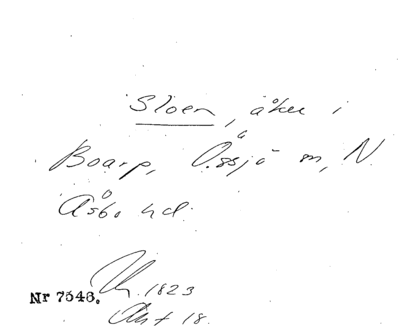 Sloen, åker i
Boarp, Össjö sn, N.
Åsbo hd.
1823
Akt 18.
Nr 7546.